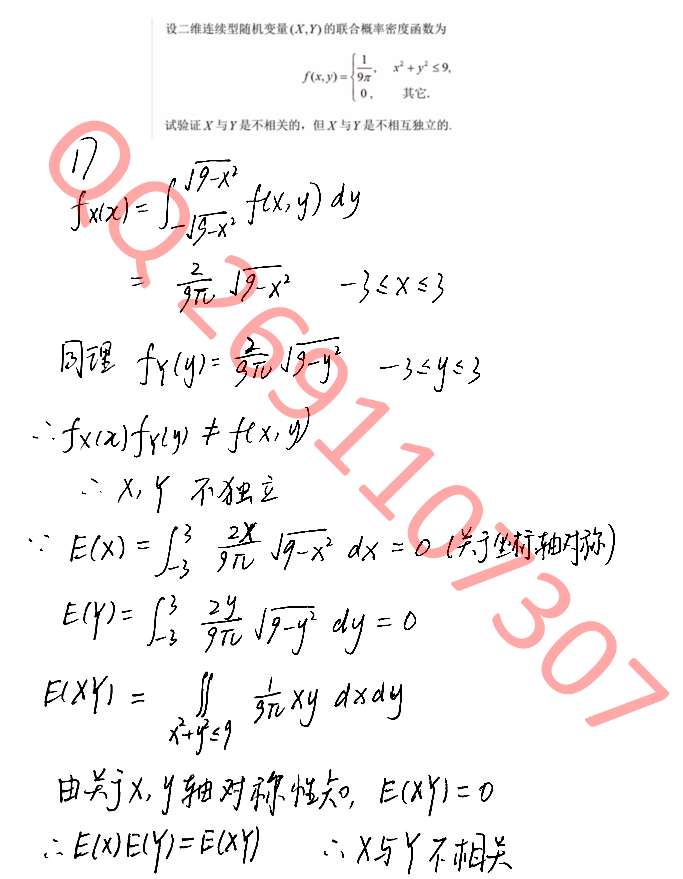 设二维连续型随机变量(X,Y)的联合概率密度函数为
f(x,y)={1/9π, x²+y²≤9,
0, 其它.
试验证X与Y是不相关的，但X与Y是不相互独立的.
1)
fX(x)=∫_{-√(9-x²)}^{√(9-x²)} f(x,y) dy
= 2/9π √(9-x²) -3≤x≤3
同理 fY(y)= 2/9π √(9-y²) -3≤y≤3
∴fX(x)fY(y)≠f(x,y)
∴ X,Y 不独立
∵ E(X)=∫_{-3}^{3} 2x/9π √(9-x²) dx=0 (关于坐标轴对称)
E(Y)=∫_{-3}^{3} 2y/9π √(9-y²) dy=0
E(XY)=∬_{x²+y²≤9} 1/9π xy dxdy
由关于x,y轴对称性知, E(XY)=0
∴E(X)E(Y)=E(XY) ∴X与Y不相关
QQ 2691107307